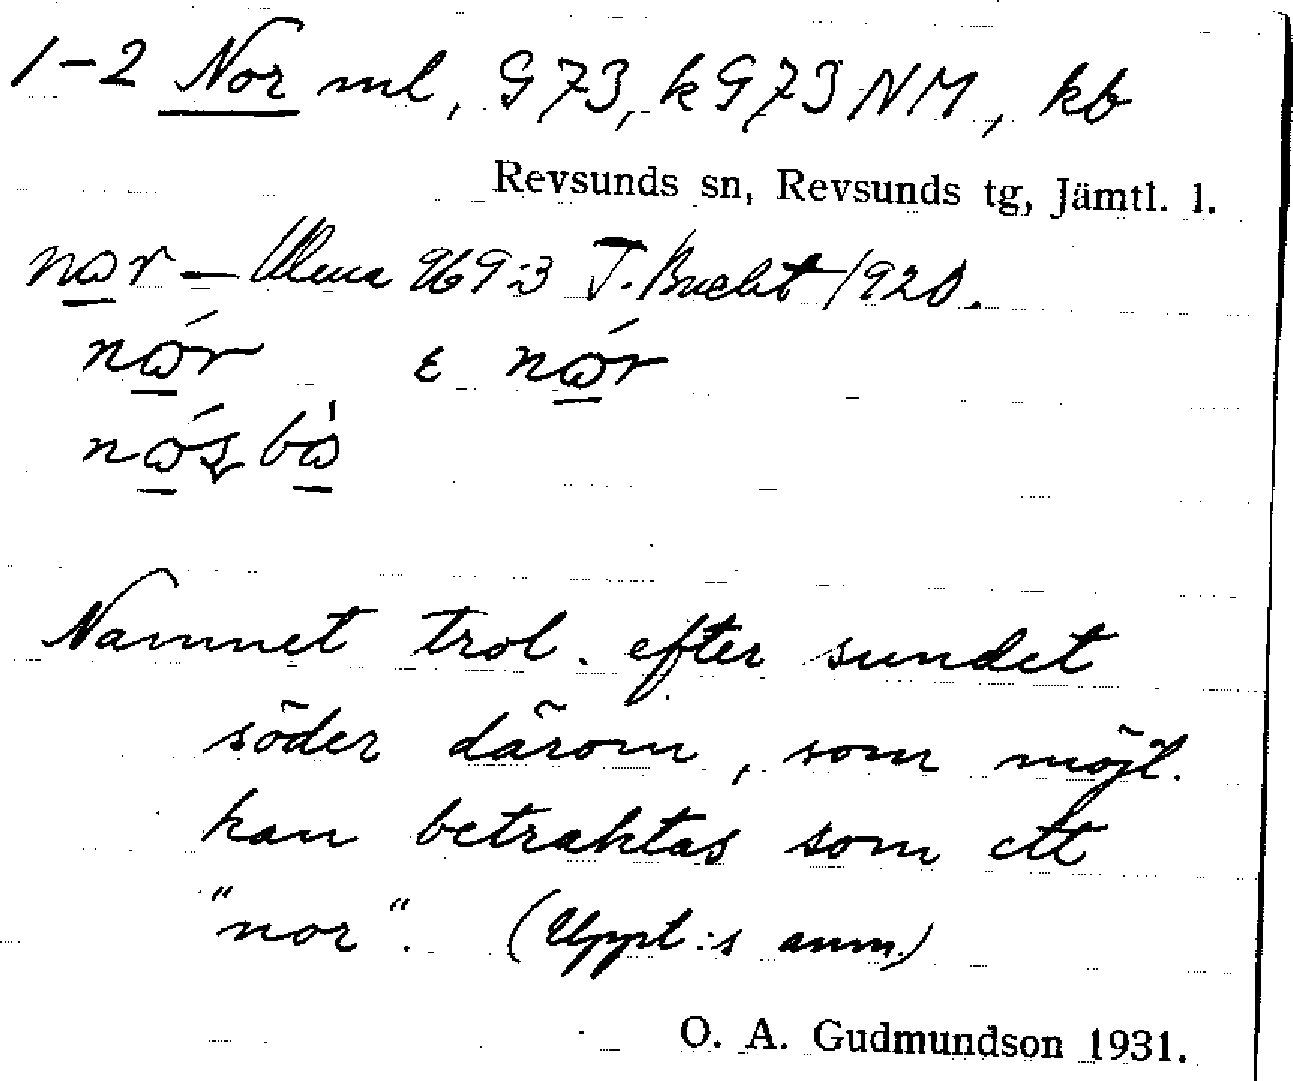 1-2 Nor ml, G73, kG73NM, kb
Revsunds sn, Revsunds tg, Jämtl. l.
T. Bucht 1920.
Namnet trol. efter sundet
söder därom, som möjl.
kan betraktas som ett
"nor". (Uppt:s anm.)
O. A. Gudmundson 1931.